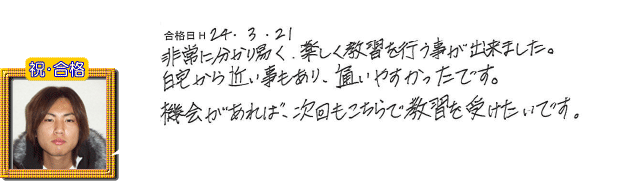 合格日 H 24.3.21
非常に分かり易く、楽しく教習を行う事が出来ました。
自宅から近い事もあり、通いやすかったです。
機会があれば、次回もこちらで教習を受けたいです。
祝・合格